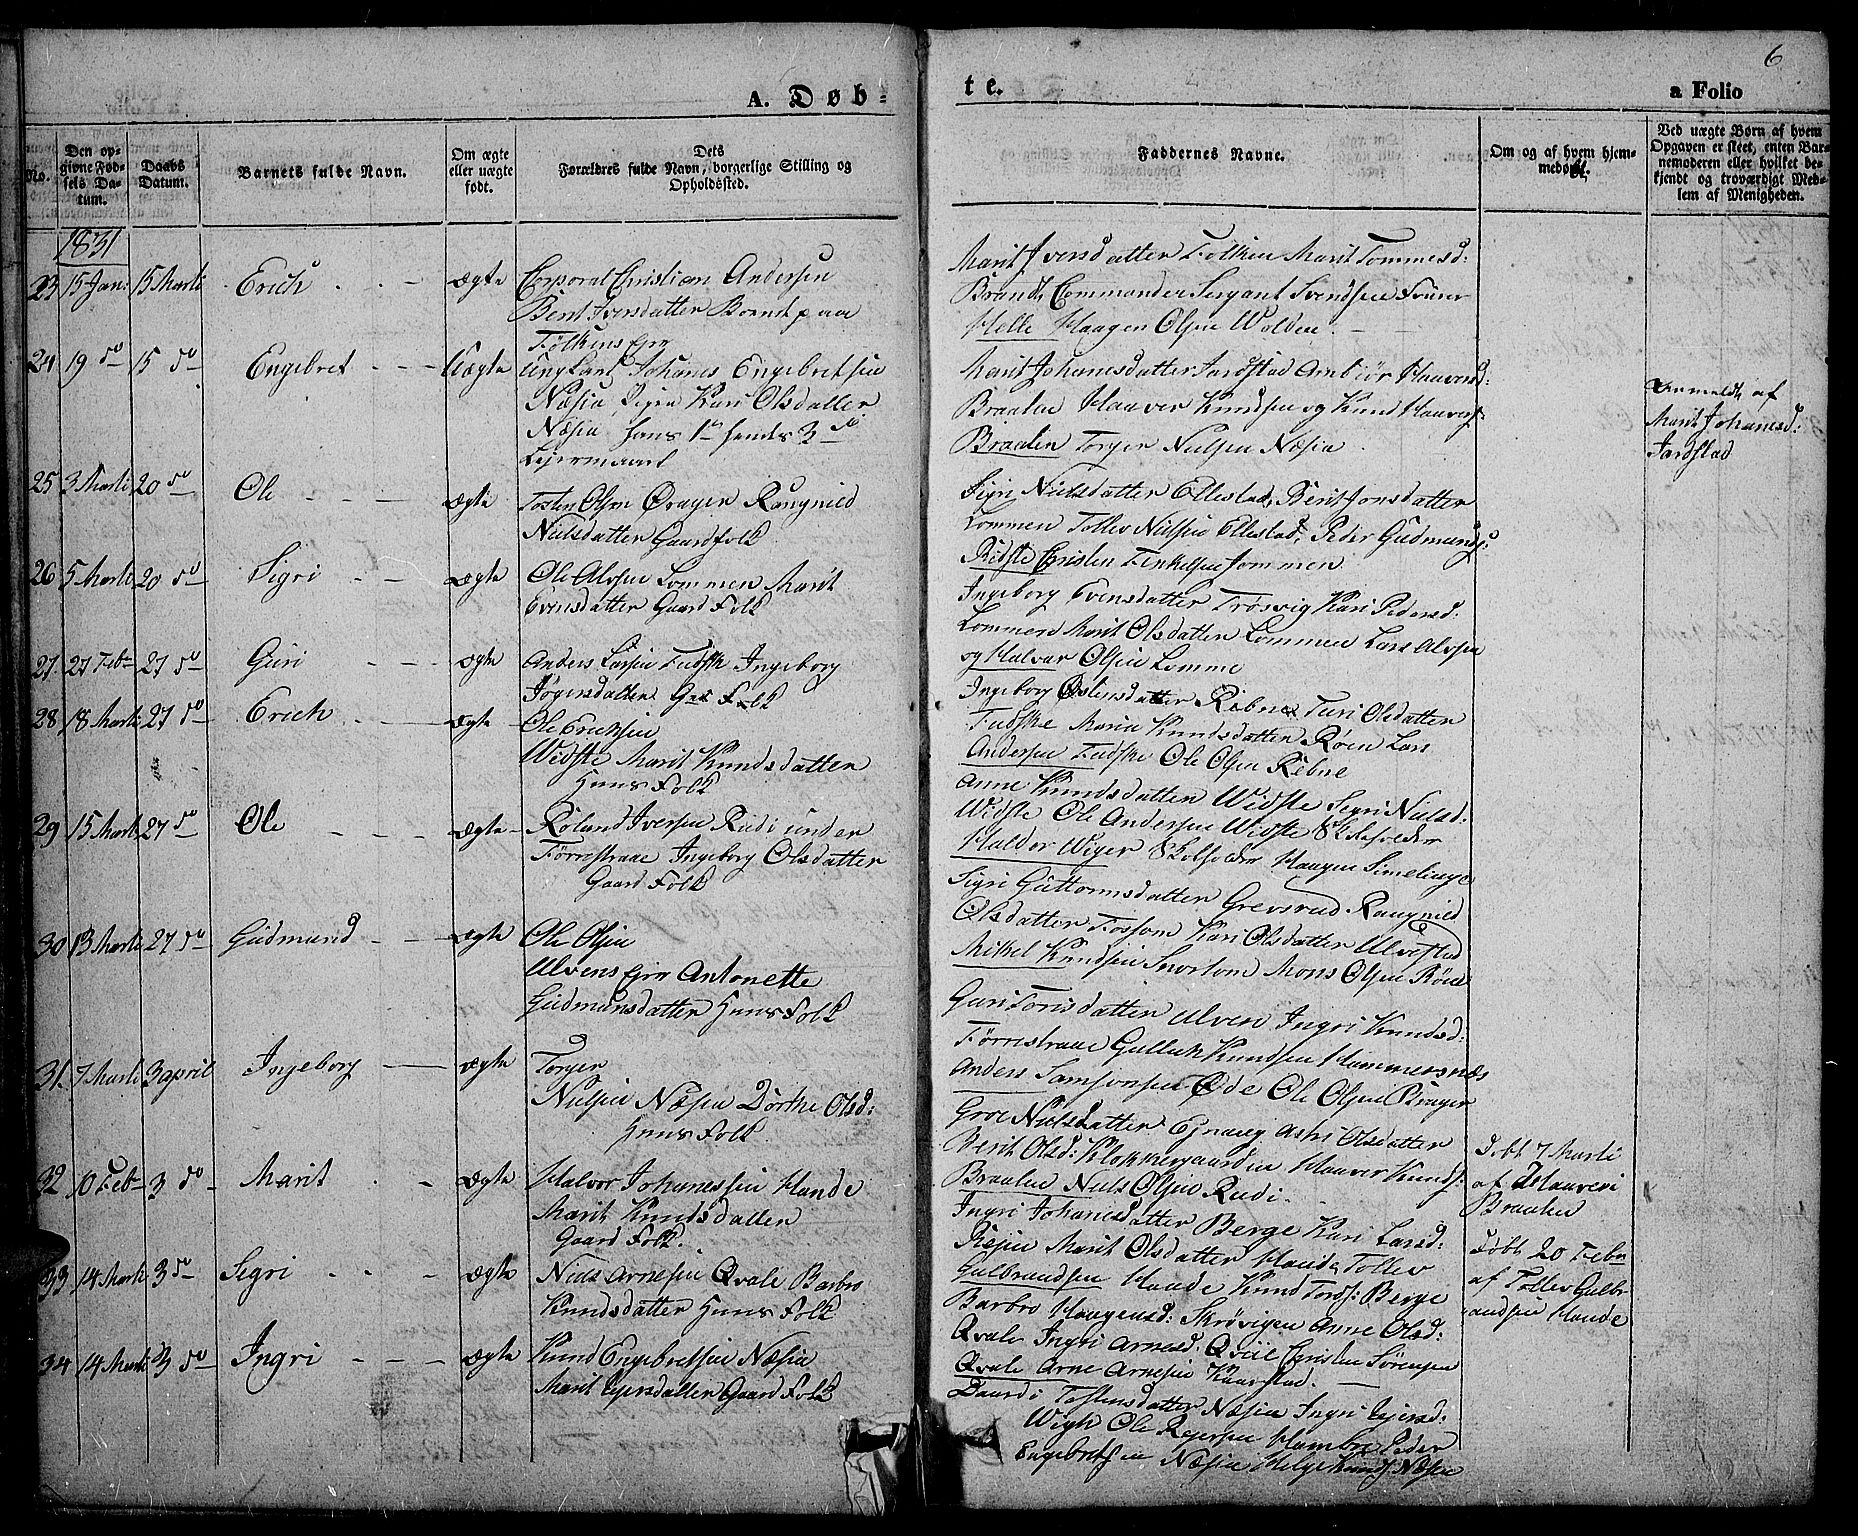 6
A. Døb-
te.
a Folio
No.
Den op-
givne Fød-
sels Da-
tum.
Daabs
Datum.
Barnets fulde Navn.
Om ægte
eller uægte
født.
Dets
Forældres fulde Navn, borgerlige Stilling og
Opholdssted.
Faddernes Navne.
Om og af hvem hjem-
medøbt.
Ved uægte Børn af hvem
Opgaven er skeet, enten Bar-
nemoderen eller hvilket be-
kjendt og troværdigt Med-
lem af Menigheden.
1831
23 15 Jan: 15 Marti Erich ægte Corporal Christian Andersen
Berit Iversdatter Brandt paa
Følkins Ejer
Marit Iversdatter Følkin Marit Tommesd:
Brandt Commandeer Sergant Svendsen
Helle Haagen Olsen Wolden
24 19 do 15 do Engebret Uægte Ungkarl Johanes Engebretsen
Næsia Pigen Kari Olsdatter
Næsia hans 1te hendes 3 do
Lejermaael
Marit Johanesdatter Jardstad Ambiør Haaversd:
Braaten Haaver Knudsen og Knud Haavers:
Braaten Torger Nielsen Næsia
Anmeldt af
Marit Johanesd:
Jardstad
25 3 Marti 20 do Ole ægte Tosten Olsen Øvager Rangnied
Nielsdatter Gaardfolk
Sigri Nielsdatter Ellestad, Berit Jonsdatter
Lommen Tollev Nielsen Ellestad, Peder Gudmunds:
Ridste Christen Finkelsen Lommen
26 5 Marti 20 do Sigri ægte Ole Alvsen Lommen Marit
Evensdatter Gaard Folk
Ingeborg Evensdatter Trøsvig Kari Pedersd:
Lommen Marit Olsdatter Lommen Lars Alvsen
og Halvar Olsen Lomme
27. 27 Febr 27 do Guri ægte Anders Larsen Fudske Ingeborg
Jøgersdatter Grd Folk
Ingeborg Østensdatter Rebne Turi Olsdatter
Fudske Maria Knudsdatter Røen Lars
Andersen Fudske Ole Olsen Rebne
28 18 Marti 27 do Erich ægte Ole Erichsen
Widste Marit Knudsdatter
Huus Folk
Anne Knudsdatter Widste Sigri Nielsd:
Widste Ole Andersen Widste
Haldor Wiger Haagen Simelinge
29 15 Marti 27 do Ole ægte Roland Iversen Rudi under
Førrestraae Ingeborg Olsdatter
Gaard Folk
Sigri Guttormsdatter Grevsrud Rangnied
Olsdatter Fossom Kari Olsdatter Ulvestad
Mikkel Knudsen Snortom Mons Olsen Røen
30 13 Marti 27 do Gudmund ægte Ole Olsen
Ulvens Ejer Antonette
Gudmunsdatter Huus Folk
Guri Torisdatter Ulven Ingri Knudsd:
Førrestraae Gulluk Knudsen Hammersnæs
Anders Samsonsen Øde Ole Olsen Brager
31. 7 Marti 3 april Ingeborg ægte Torger
Nielsen Næsia Dorthe Olsd:
Huus Folk
Groe Nielsdatter Astri Olsdatter
Berit Olsd: Klokkergaarden Haaver Knuds:
Braaten Niels Olsen Rudi
Døbt 7 Marti
af Haaveri
Braaten
32 10 Feb 3 do Marit ægte Halvor Johanessen Hande
Marit Knudsdatter
Gaard Folk.
Ingri Johanesdatter Berge Kari Larsd:
Næsia Marit Olsdatter Hande, Tollev
Gulbrandsen Hande Knud Tords: Berge
Døbt 20 Febr
af Tollev Gulbr
andsen Hande
33 14 Marti 3 do Sigri ægte Niels Arnesen Qvale Barbro
Knudsdatter Huus Folk
Barbro Haagensd: Skrøvigen Anne Olsd:
Qvale Ingri Arnesd: Qvale Christen Sørensen
Qvale Arne Arnesen Kaarstad.
34 14 Marti 3 do Ingri ægte Knud Engebretsen Næsia
Marit Ejersdatter Gaard Folk
Tostensdatter Næsia Ingri Ejersd:
Wigh Ole Rejersen Hambre Peder
Engebretsen Næsia Helge Knuds Næsia